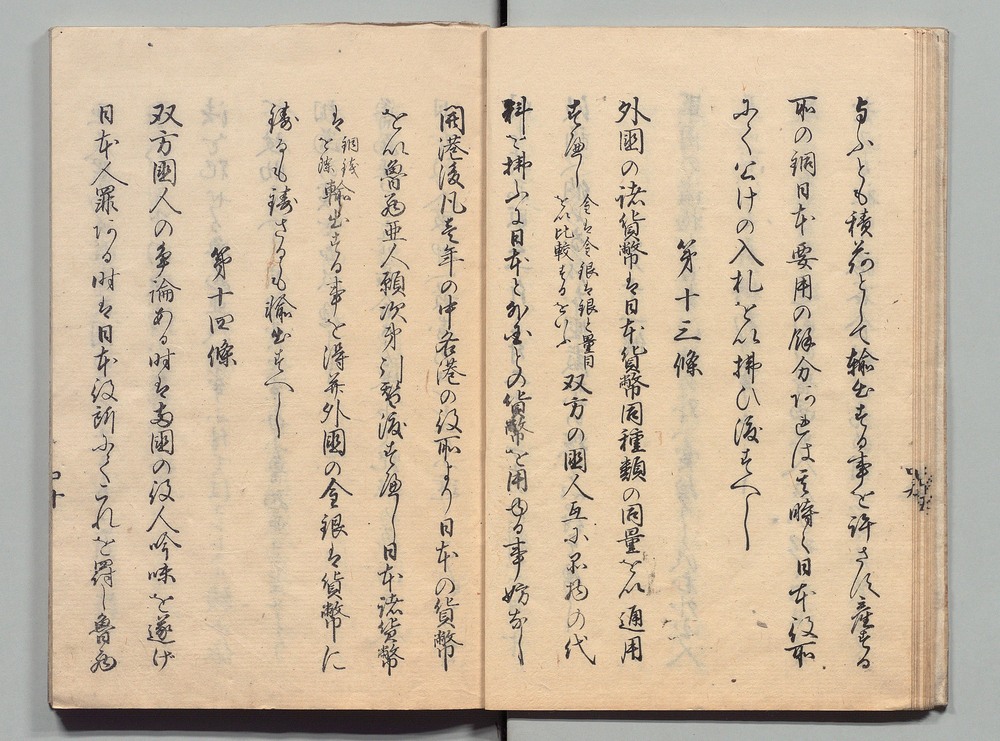 与ふとも積荷として輸出する事を許さす産する
所の銅日本要用の餘分あれは其時々日本役所
にて公けの入札を以拂ひ渡すへし
第十三條
外國の諸貨幣は日本貨幣同種類の同量を以通用
すへし
金は金銀は銀と量目
を以比較するをいふ
双方の國人互に品物の代
料を拂ふに日本と外国との貨幣を用ゆる事妨なし
開港後凡壱年の中各港の役所より日本の貨幣
を以魯西亜人願次第引替渡すへし日本諸貨幣
は
銅銭
を除
輸出する事を得并外國の金銀は貨幣に
鋳るも鋳さるも輸出すへし
第十四條
双方國人の争論ある時は両國の役人吟味を遂け
日本人罪ある時は日本役所にてこれを罰し魯西